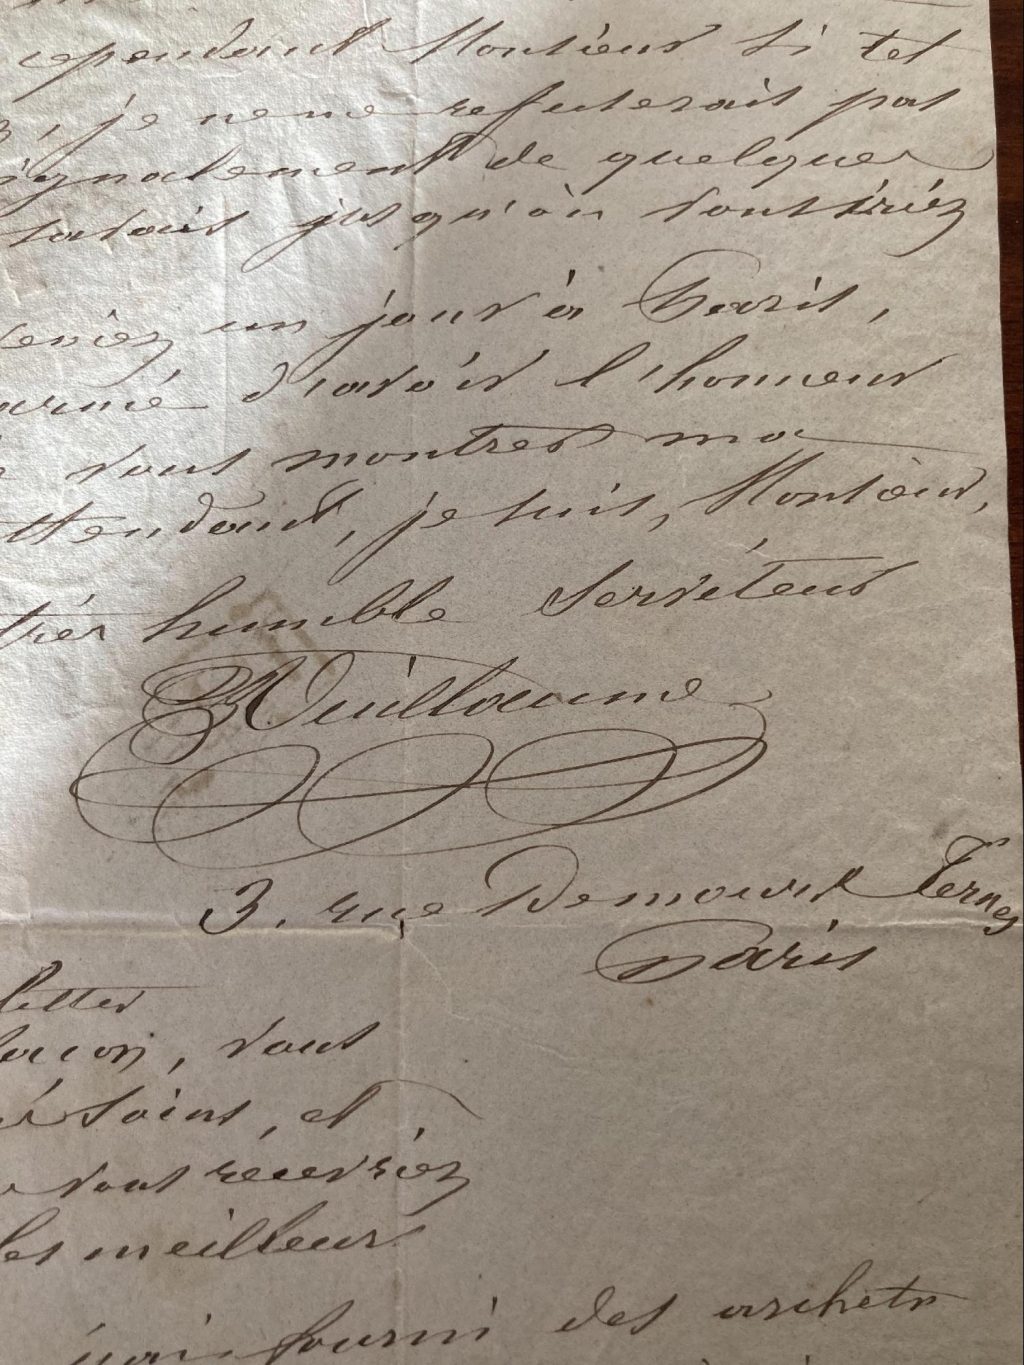 cependant Monsieur si tel
, je ne me refuserais pas
signalement de quelques
savais jusqu'où vous iriez
veniez un jour à Paris,
d'avoir l'honneur
vous montrer ma
attendant, je suis, Monsieur,
très humble Serviteur
Vuillaume
3. rue Demours Ternes
Paris
letter
façon, vous
soins, et
vous recevriez
les meilleurs
fourni des archets